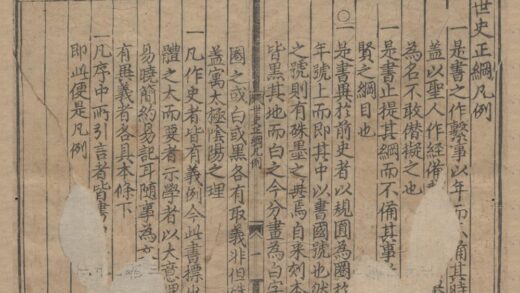 世史正綱凡例
一是書之作繫事以年而不備其時
蓋以聖人作經備
為名不敢僭擬之也
一是書止提其綱而不備其事
賢之綱目也
○一是書異於前史者以規圓為圈於
年號上而即其中以書國號也然
之號則有硃墨之異焉自来刻本
皆黑其地而白之今分畫為白字
世史正綱凡例 一
國之或白或黑各有取義非但硃
蓋寓太極陰陽之理
一凡作史者皆有義例今此書標出
體之大而要者示學者以大意
易曉簡約易記耳隨事為
有異義者各具本條下
一凡序中所引言者皆書
即此便是凡例